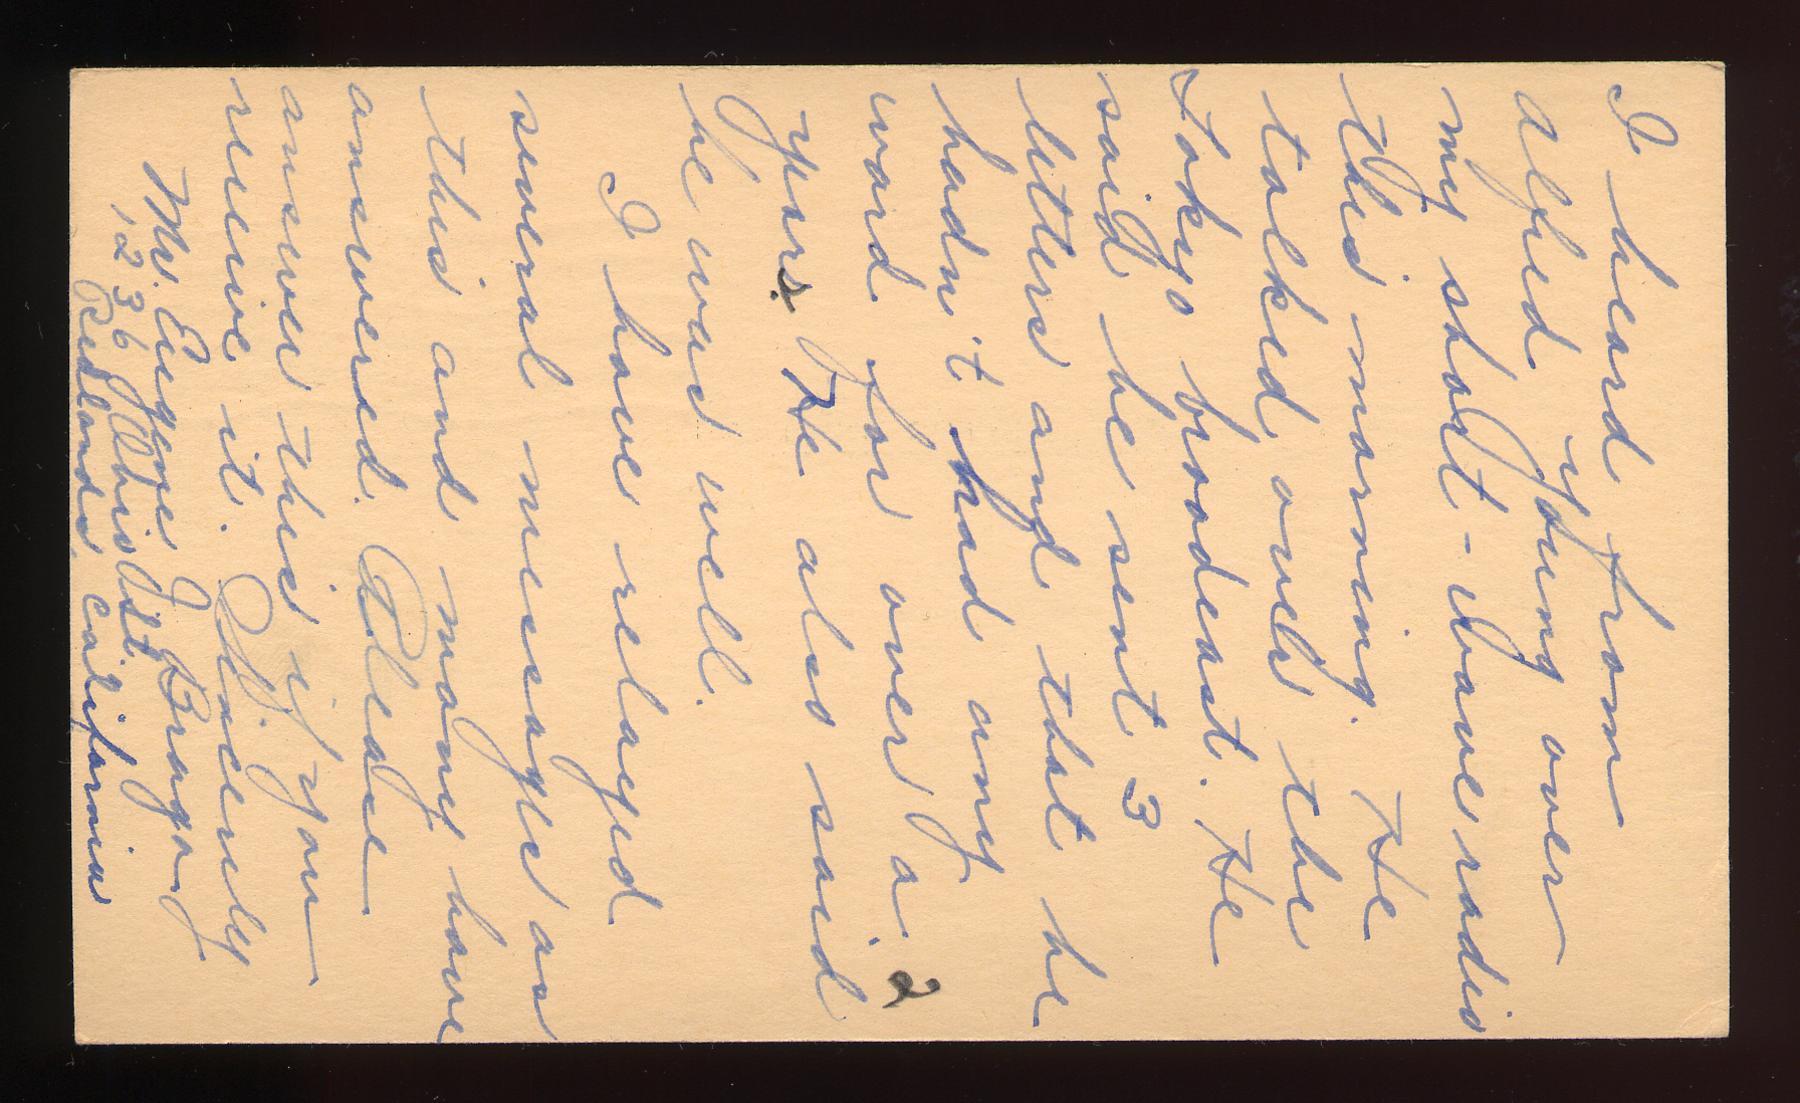 I heard from
Alfred Young over
my short-wave radio
this morning. He
talked over the
Tokyo broadcast. He
said he sent 3
letters and that he
hadn't had any
word for over a 2
years. He also said
he was well.
I have relayed
several messages as
this and many have
answered. Please
answer this if you
receive it. Sincerely
Mr. Eugene J. Bragg
1236 Ohio St.
Redlands, California